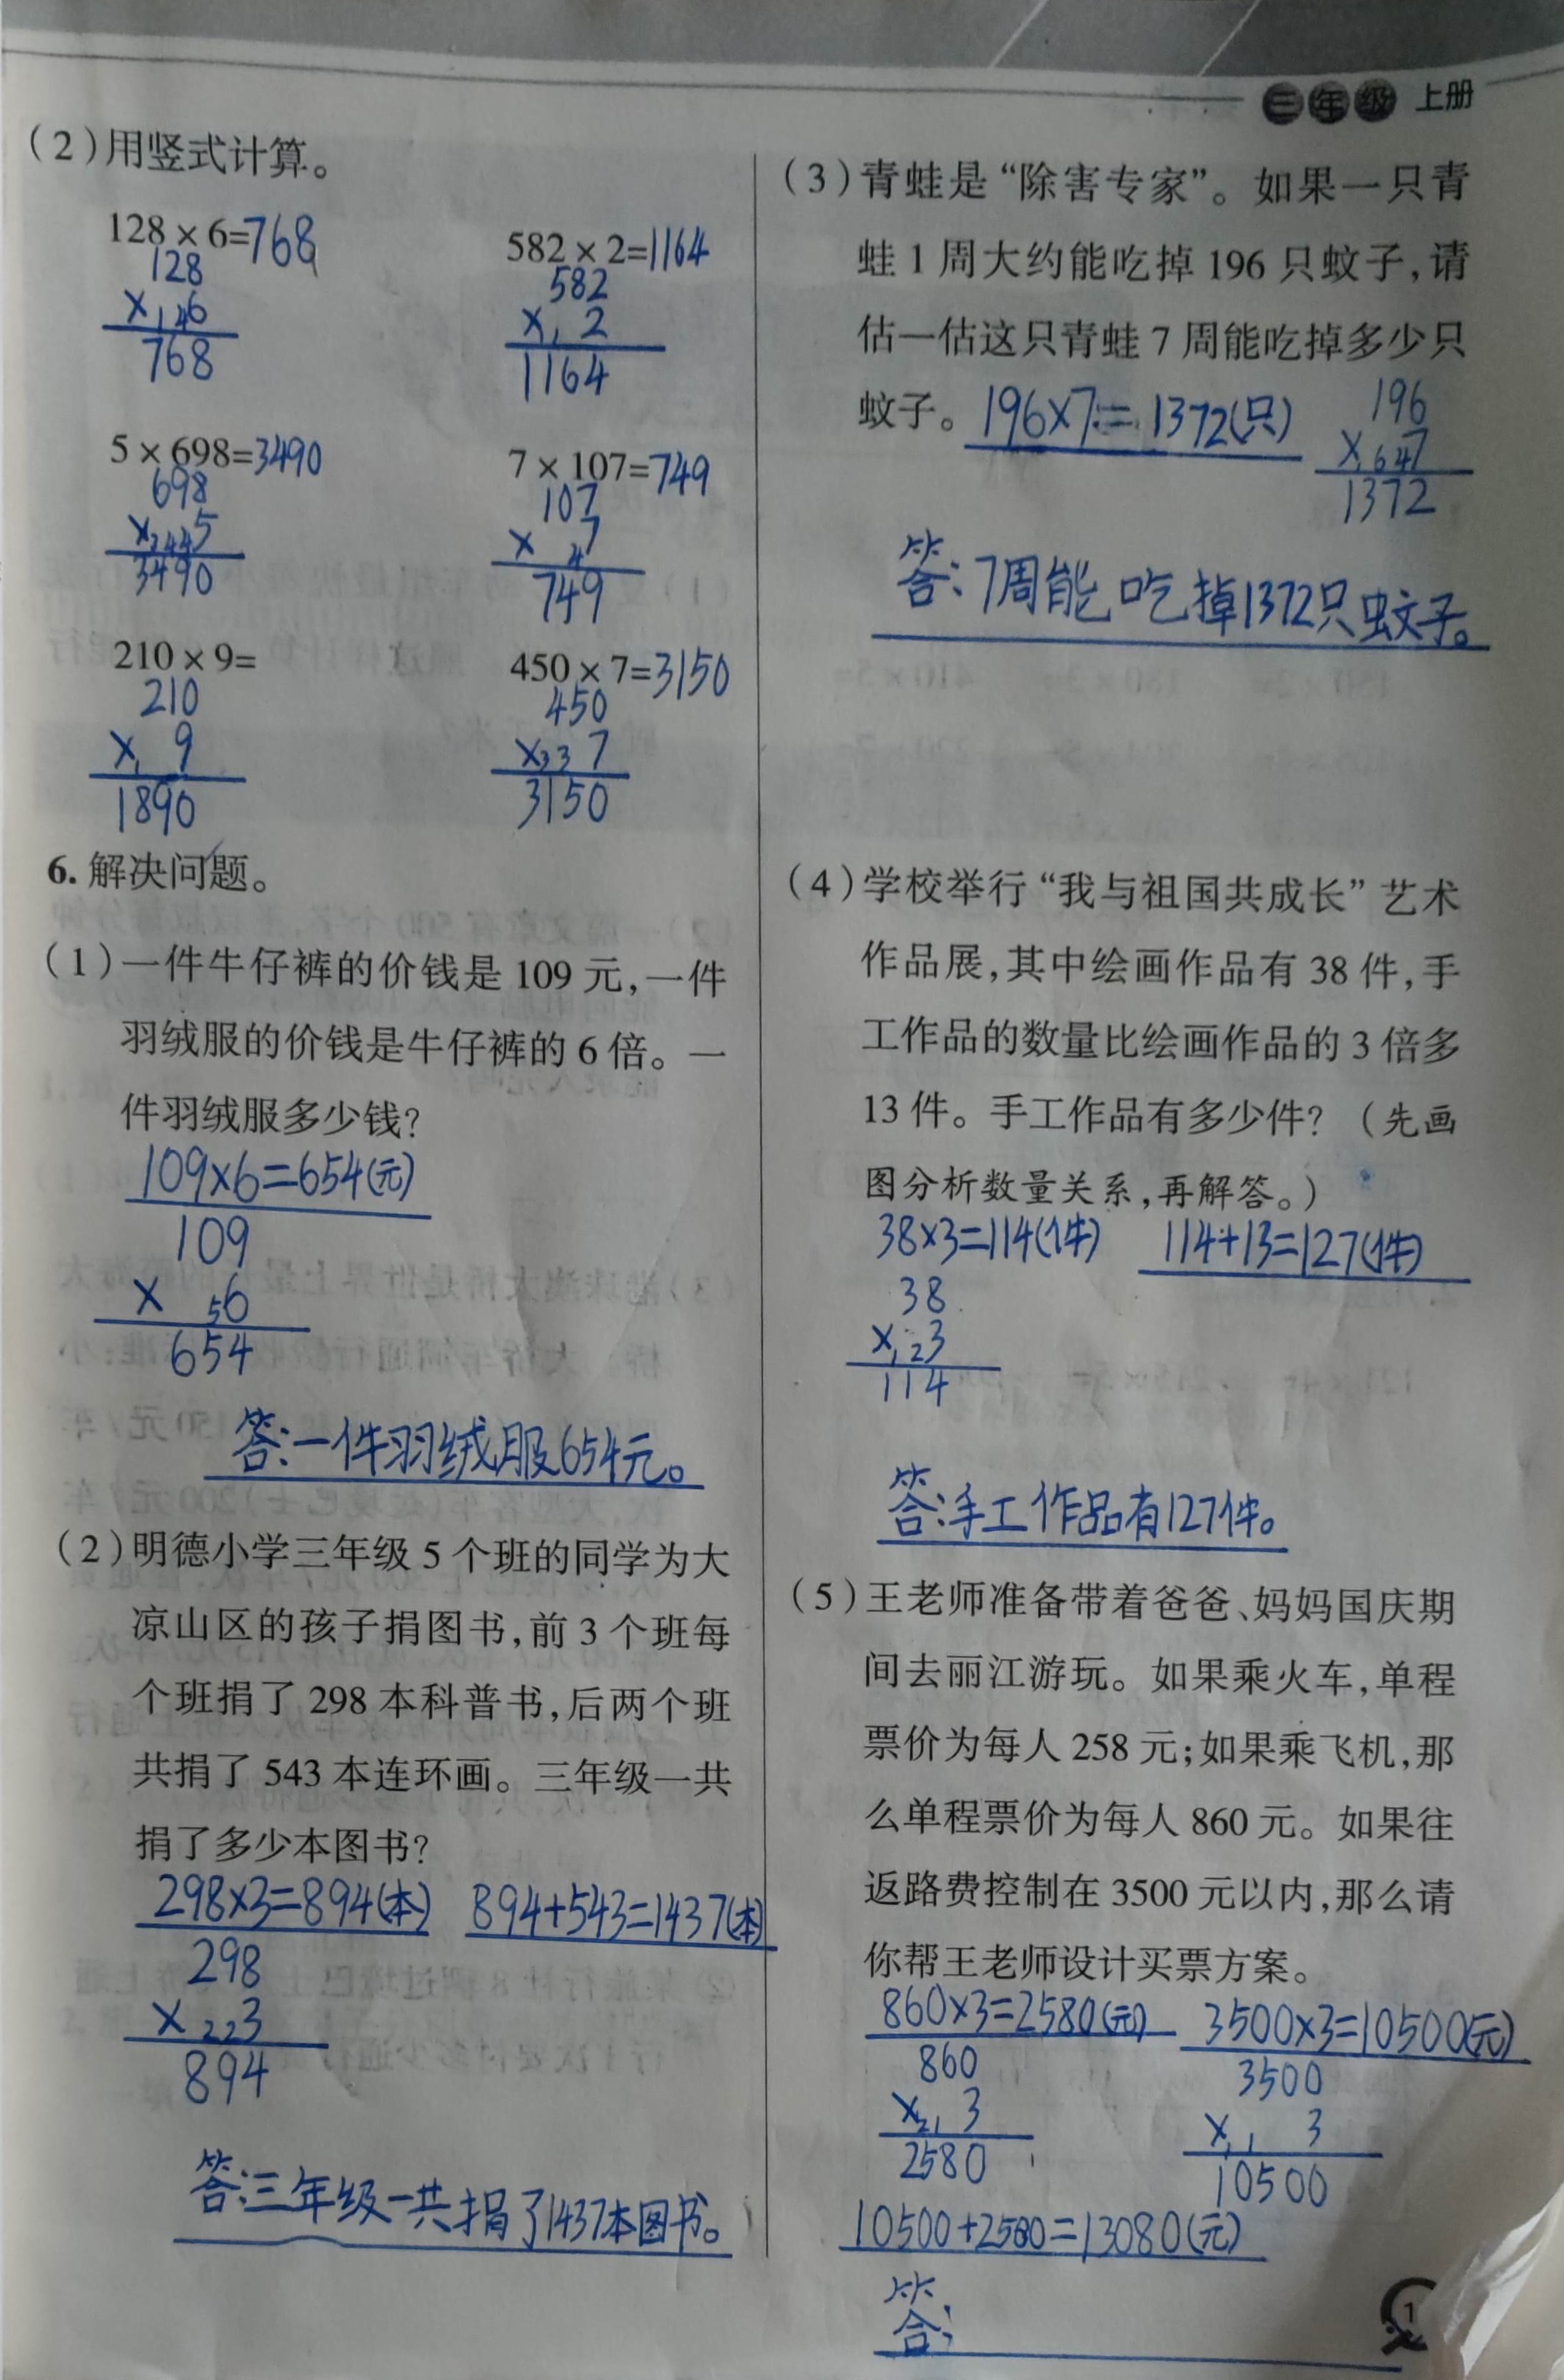 三年级 上册
(2)用竖式计算。
128×6=768
128
×, 46
768
582×2=1164
582
×, 2
1164
5×698=3490
698
×3445
3490
7×107=749
107
× 47
749
210×9=
210
×, 9
1890
450×7=3150
450
×33 7
3150
6. 解决问题。
(1)一件牛仔裤的价钱是 109 元,一件
羽绒服的价钱是牛仔裤的 6 倍。一
件羽绒服多少钱?
109×6=654(元)
109
× 56
654
答:一件羽绒服654元。
(2)明德小学三年级 5 个班的同学为大
凉山区的孩子捐图书,前 3 个班每
个班捐了 298 本科普书,后两个班
共捐了 543 本连环画。三年级一共
捐了多少本图书?
298×3=894(本) 894+543=1437(本)
298
×223
894
答:三年级一共捐了1437本图书。
(3)青蛙是“除害专家”。如果一只青
蛙 1 周大约能吃掉 196 只蚊子,请
估一估这只青蛙 7 周能吃掉多少只
蚊子。196×7=1372(只)
196
×,647
1372
答:7周能吃掉1372只蚊子。
(4)学校举行“我与祖国共成长”艺术
作品展,其中绘画作品有 38 件,手
工作品的数量比绘画作品的 3 倍多
13 件。手工作品有多少件?(先画
图分析数量关系,再解答。)
38×3=114(件) 114+13=127(件)
38
×,23
114
答:手工作品有127件。
(5)王老师准备带着爸爸、妈妈国庆期
间去丽江游玩。如果乘火车,单程
票价为每人 258 元;如果乘飞机,那
么单程票价为每人 860 元。如果往
返路费控制在 3500 元以内,那么请
你帮王老师设计买票方案。
860×3=2580(元) 3500×3=10500(元)
860
×21 3
2580
3500
×,1 3
10500
10500+2580=13080(元)
答:
1